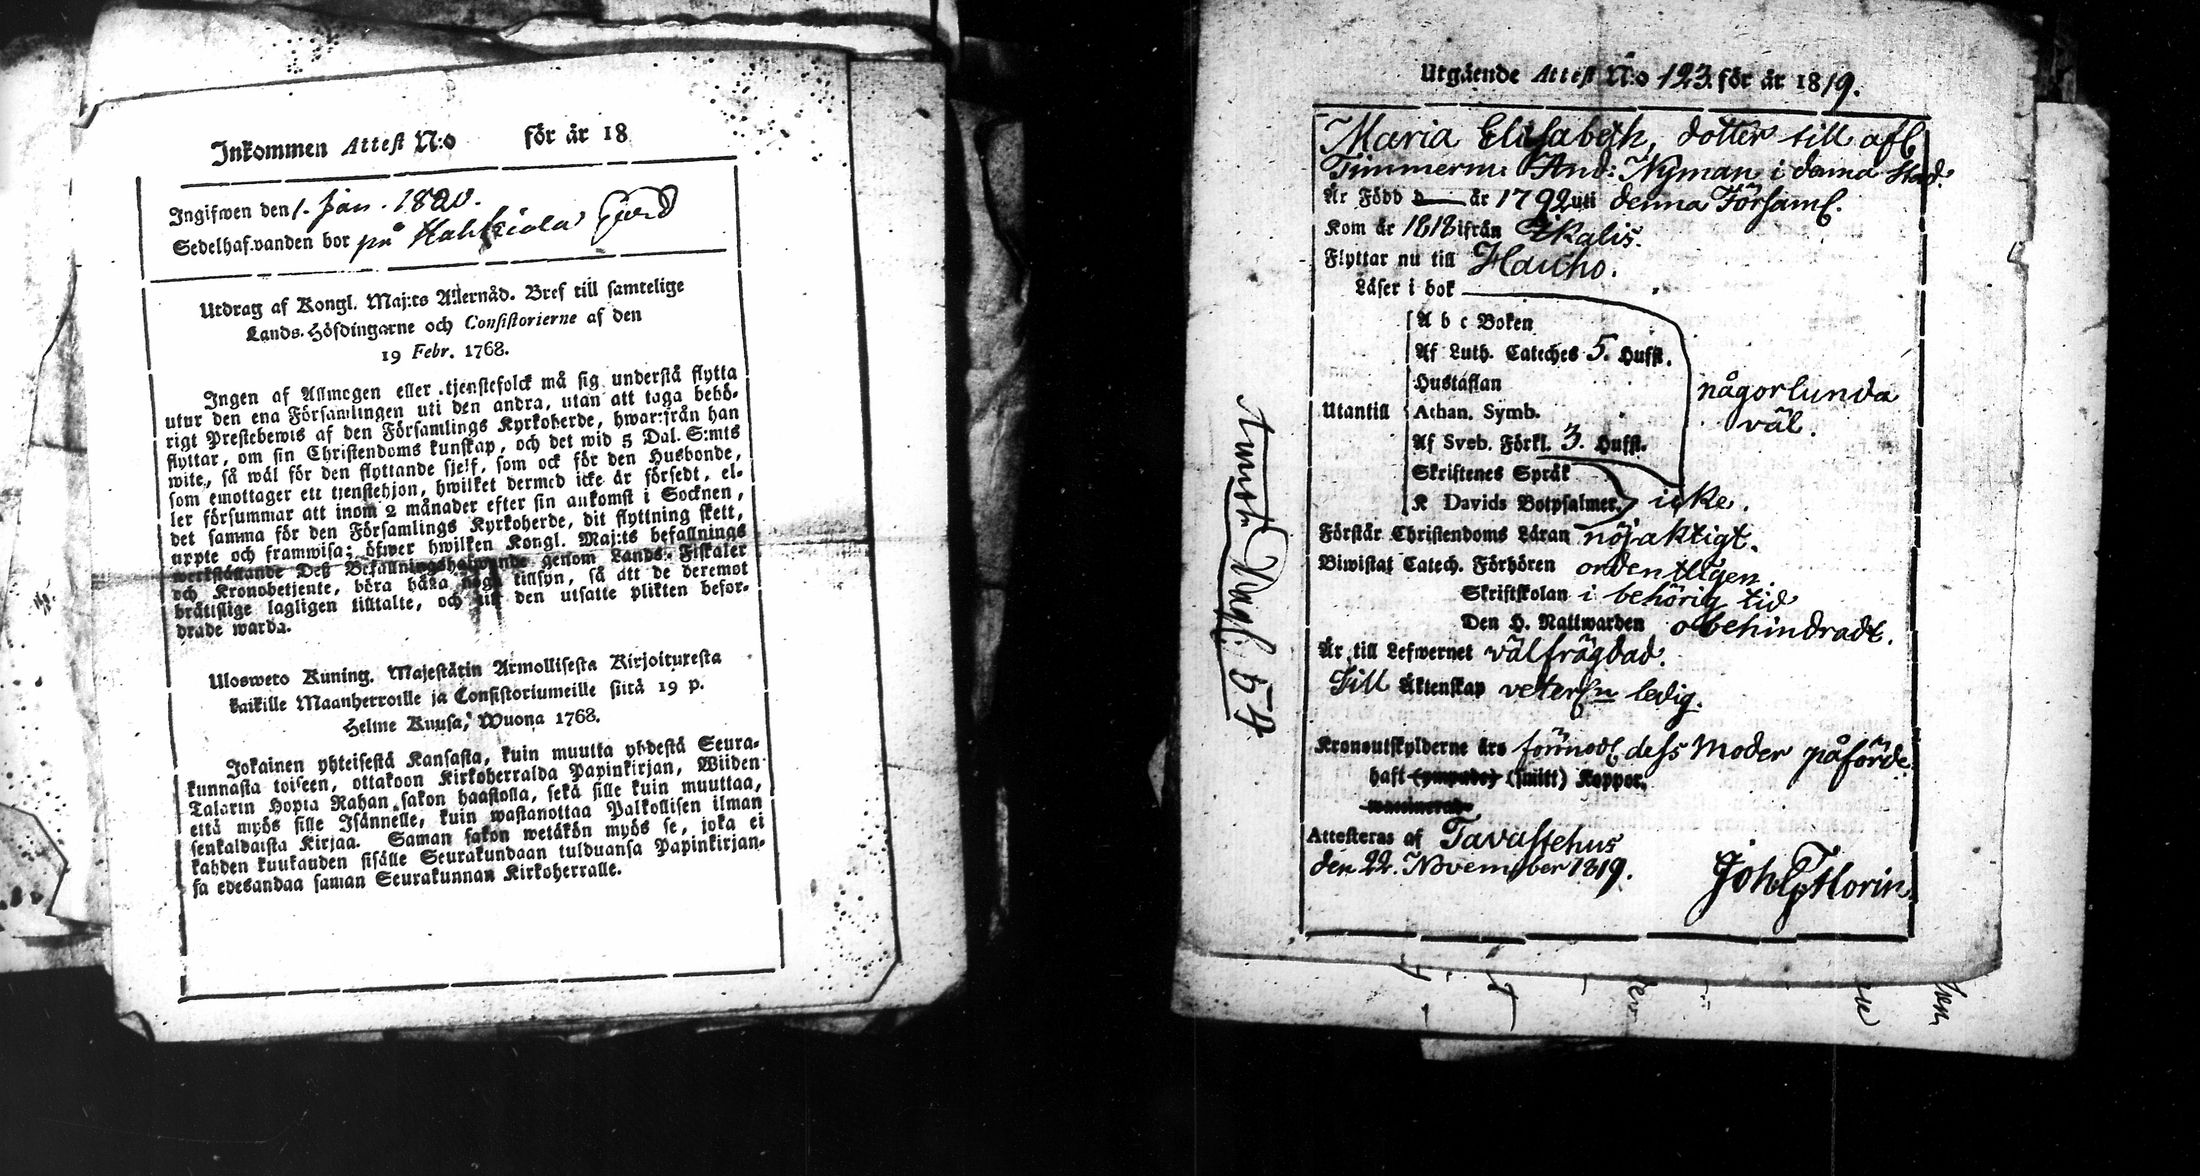 Inkommen Attest N:o för år 18
Ingifwen den 1. Jan. 1820.
Sedelhafwanden bor på Gård
Utdrag af Kongl. Maj:ts Allernåd. Bref till samtelige
Lands-Höfdingarne och Consistorierne af den
19 Febr. 1768.
Ingen af Allmogen eller tjenstefolck må sig understå flytta
utur den ena Församlingen uti den andra, utan att taga behö-
rigt Prestebewis af den Församlings Kyrkoherde, hwarifrån han
flyttar, om sin Christendoms kunskap, och det wid 5 Dal. S:mts
wite, så wäl för den flyttande sjelf, som ock för den Husbonde,
som emottager ett tjenstehjon, hwilket dermed icke är försedt, el-
ler försummar att inom 2 månader efter sin ankomst i Socknen,
det samma för den Församlings Kyrkoherde, dit flyttning skett,
uppte och framwisa; öfwer hwilken Kongl. Maj:ts befallnings
werkställande Deß Befallningshafwande genom Lands-Fiskaler
och Kronobetjente, böra hafva noga tillsyn, så att de deremot
bråttslige lagligen tilltalte, och till den utsatte plikten befor-
drade warda.
Ulosweto Kuning. Majestätin Armollisesta Kirjoituresta
kaikille Maanherroille ja Consistoriumeille siitä 19 p.
Helme Kuusa, Wuona 1768.
Jokainen yhteisestä Kansasta, kuin muutta yhdestä Seura-
kunnasta toiseen, ottakoon Kirkoherralda Papinkirjan, Wiiden
Talarin Hopia Rahan sakon haastolla, sekä sille kuin muuttaa,
että myös sille Isännelle, kuin wastanottaa Palkollisen ilman
senkaldaista Kirjaa. Saman sakon wetäkön myös se, joka ei
kahden kuukauden sisälle Seurakundaan tulduansa Papinkirjan-
sa edesandaa saman Seurakunnan Kirkoherralle.
Utgående Attest N:o 123. för år 1819.
Maria Elisabeth, dotter till afl
Timmerm: And: Nyman i denna Stad.
Är Född d år 1792 uti denna Församl.
Kom år 1818 ifrån Ikalis.
Flyttar nu till Hauho.
Läser i bok
A b c Boken
Af Luth. Cateches 5. Hufst.
Hustaflan
någorlunda
väl.
Utantill Athan. Symb.
Af Sveb. Förkl. 3. Hufst.
Skriftenes Språk
K Davids Botpsalmer, icke.
Förstår Christendoms Läran nöjaktigt.
Biwistat Catech. Förhören ordentligen.
Skriftskolan i behörig tid
Den H. Nattwarden obehindradt.
Är till Lefwernet välfrägdad.
Till Äktenskap veterl:n ledig.
Kronoutskylderne äro förmodl. dess Moder påförde
haft (ympade) (smitt) Koppor.
Attesteras af Tavastehus
den 22. November 1819.
Joh. G. Florin.